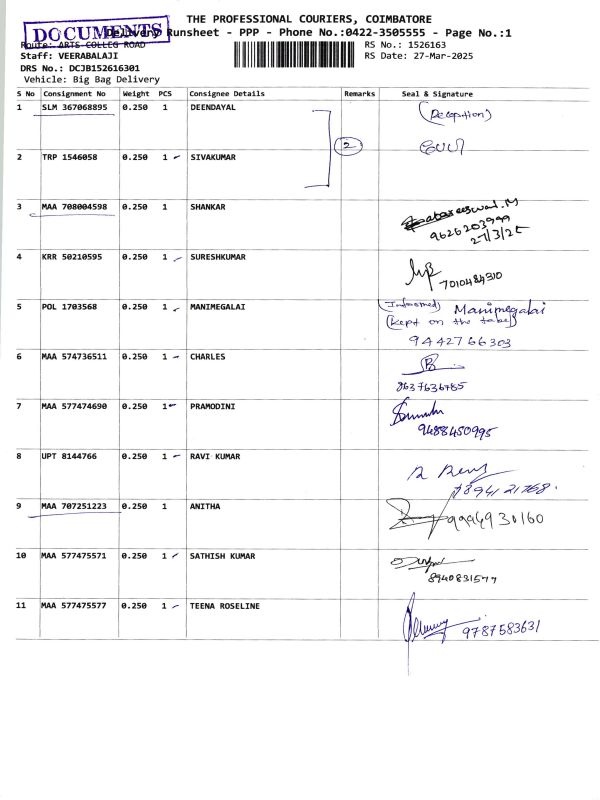 THE PROFESSIONAL COURIERS, COIMBATORE
DOCUMENTS
Delivery Runsheet - PPP - Phone No.:0422-3505555 - Page No.:1
Route: ARTS COLLEG ROAD
RS No.: 1526163
Staff: VEERABALAJI
RS Date: 27-Mar-2025
DRS No.: DCJB152616301
Vehicle: Big Bag Delivery
S No Consignment No Weight PCS Consignee Details Remarks Seal & Signature
1 SLM 367068895 0.250 1 DEENDAYAL (Reception)
2
2 TRP 1546058 0.250 1 SIVAKUMAR
3 MAA 708004598 0.250 1 SHANKAR
9626203999
27/3/25
4 KRR 50210595 0.250 1 SURESHKUMAR
7010484310
5 POL 1703568 0.250 1 MANIMEGALAI (Informed) Manimegalai
(kept on the table)
9442766303
6 MAA 574736511 0.250 1 CHARLES
8637636785
7 MAA 577474690 0.250 1 PRAMODINI
9488450995
8 UPT 8144766 0.250 1 RAVI KUMAR
9 MAA 707251223 0.250 1 ANITHA
9994930160
10 MAA 577475571 0.250 1 SATHISH KUMAR
8940831577
11 MAA 577475577 0.250 1 TEENA ROSELINE
9787583631